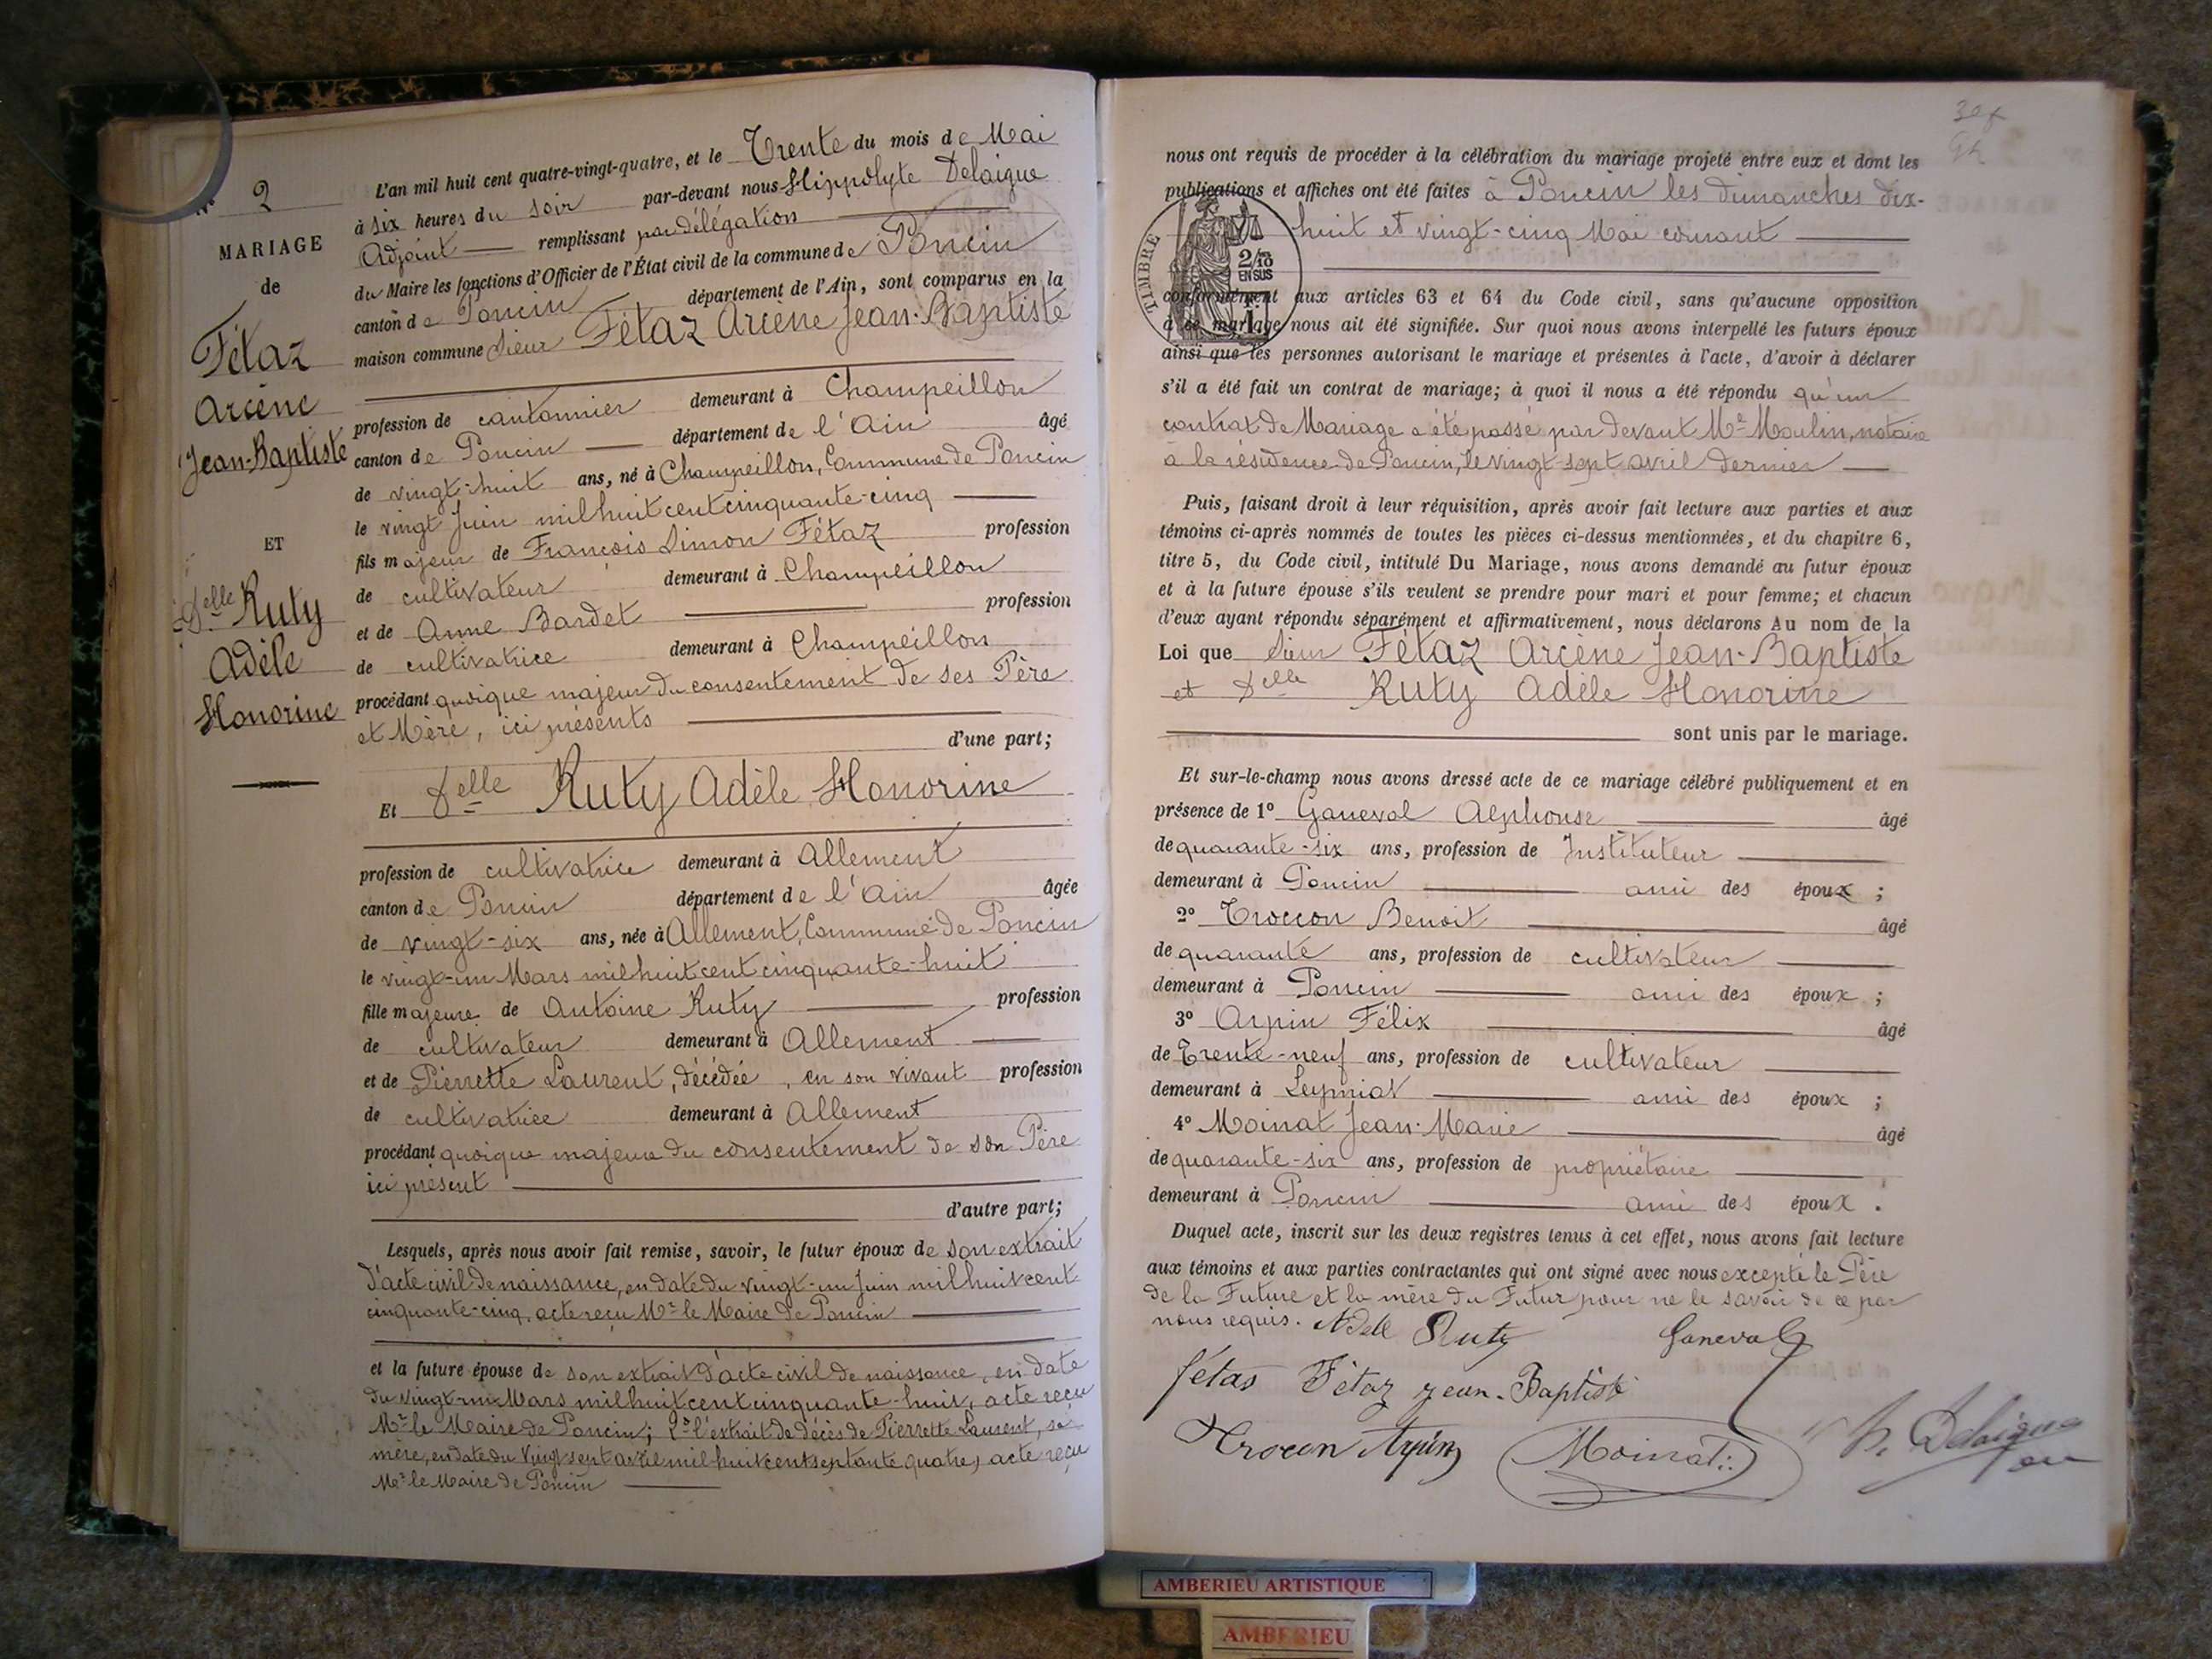 N° 2
MARIAGE
de
Fétaz
Arcène
Jean-Baptiste
ET
Delle Ruty
Adèle
Honorine
L'an mil huit cent quatre-vingt-quatre, et le Trente du mois de Mai
à six heures du soir par-devant nous Hippolyte Delaigue
Adjoint remplissant par délégation
du Maire les fonctions d'Officier de l'État civil de la commune de Poncin
canton de Poncin département de l'Ain, sont comparus en la
maison commune Sieur Fétaz Arcène Jean-Baptiste
profession de cantonnier demeurant à Champeillon
canton de Poncin département de l'Ain âgé
de vingt-huit ans, né à Champeillon, Commune de Poncin
le vingt Juin mil huit cent cinquante-cinq
fils majeur de François Simon Fétaz profession
de cultivateur demeurant à Champeillon
et de Anne Bardet profession
de cultivatrice demeurant à Champeillon
procédant quoique majeur du consentement de ses Père
et Mère, ici présents
d'une part;
Et Delle Ruty Adèle Honorine
profession de cultivatrice demeurant à Allement
canton de Poncin département de l'Ain âgée
de vingt-six ans, née à Allement, Commune de Poncin
le vingt-un Mars mil huit cent cinquante-huit
fille majeure de Antoine Ruty profession
de cultivateur demeurant à Allement
et de Pierrette Laurent, décédée, en son vivant profession
de cultivatrice demeurant à Allement
procédant quoique majeure du consentement de son Père
ici présent
d'autre part;
Lesquels, après nous avoir fait remise, savoir, le futur époux de son extrait
d'acte civil de naissance, en date du vingt-un Juin mil huit cent
cinquante-cinq, acte reçu Mr le Maire de Poncin
et la future épouse de son extrait d'acte civil de naissance, en date
du vingt-un Mars mil huit cent cinquante-huit, acte reçu
Mr le Maire de Poncin; 2° l'extrait de décès de Pierrette Laurent, sa
mère, en date du vingt sept avril mil huit cent septante quatre, acte reçu
Mr le Maire de Poncin
nous ont requis de procéder à la célébration du mariage projeté entre eux et dont les
publications et affiches ont été faites à Poncin les dimanches dix-
huit et vingt-cinq Mai courant
TIMBRE
2/10
EN SUS
conformément aux articles 63 et 64 du Code civil, sans qu'aucune opposition
à ce mariage nous ait été signifiée. Sur quoi nous avons interpellé les futurs époux
ainsi que les personnes autorisant le mariage et présentes à l'acte, d'avoir à déclarer
s'il a été fait un contrat de mariage; à quoi il nous a été répondu qu'un
contrat de Mariage a été passé par devant Me Moulin, notaire
à la résidence de Poncin, le vingt sept avril dernier
Puis, faisant droit à leur réquisition, après avoir fait lecture aux parties et aux
témoins ci-après nommés de toutes les pièces ci-dessus mentionnées, et du chapitre 6,
titre 5, du Code civil, intitulé Du Mariage, nous avons demandé au futur époux
et à la future épouse s'ils veulent se prendre pour mari et pour femme; et chacun
d'eux ayant répondu séparément et affirmativement, nous déclarons Au nom de la
Loi que Sieur Fétaz Arcène Jean-Baptiste
et Delle Ruty Adèle Honorine
sont unis par le mariage.
Et sur-le-champ nous avons dressé acte de ce mariage célébré publiquement et en
présence de 1° Ganeval Alphonse âgé
de quarante-six ans, profession de Instituteur
demeurant à Poncin ami des époux ;
2° Troccon Benoit âgé
de quarante ans, profession de cultivateur
demeurant à Poncin ami des époux ;
3° Arpin Félix âgé
de Trente-neuf ans, profession de cultivateur
demeurant à Leymiat ami des époux ;
4° Moinat Jean-Marie âgé
de quarante-six ans, profession de propriétaire
demeurant à Poncin ami des époux .
Duquel acte, inscrit sur les deux registres tenus à cet effet, nous avons fait lecture
aux témoins et aux parties contractantes qui ont signé avec nous excepté le Père
de la Future et la mère du Futur pour ne le savoir de ce par
nous requis. Adèle Ruty Ganeval
fétas Fétaz jean-Baptiste
Trocon Arpin Moinat H. Delaigue
AMBERIEU ARTISTIQUE
AMBERIEU